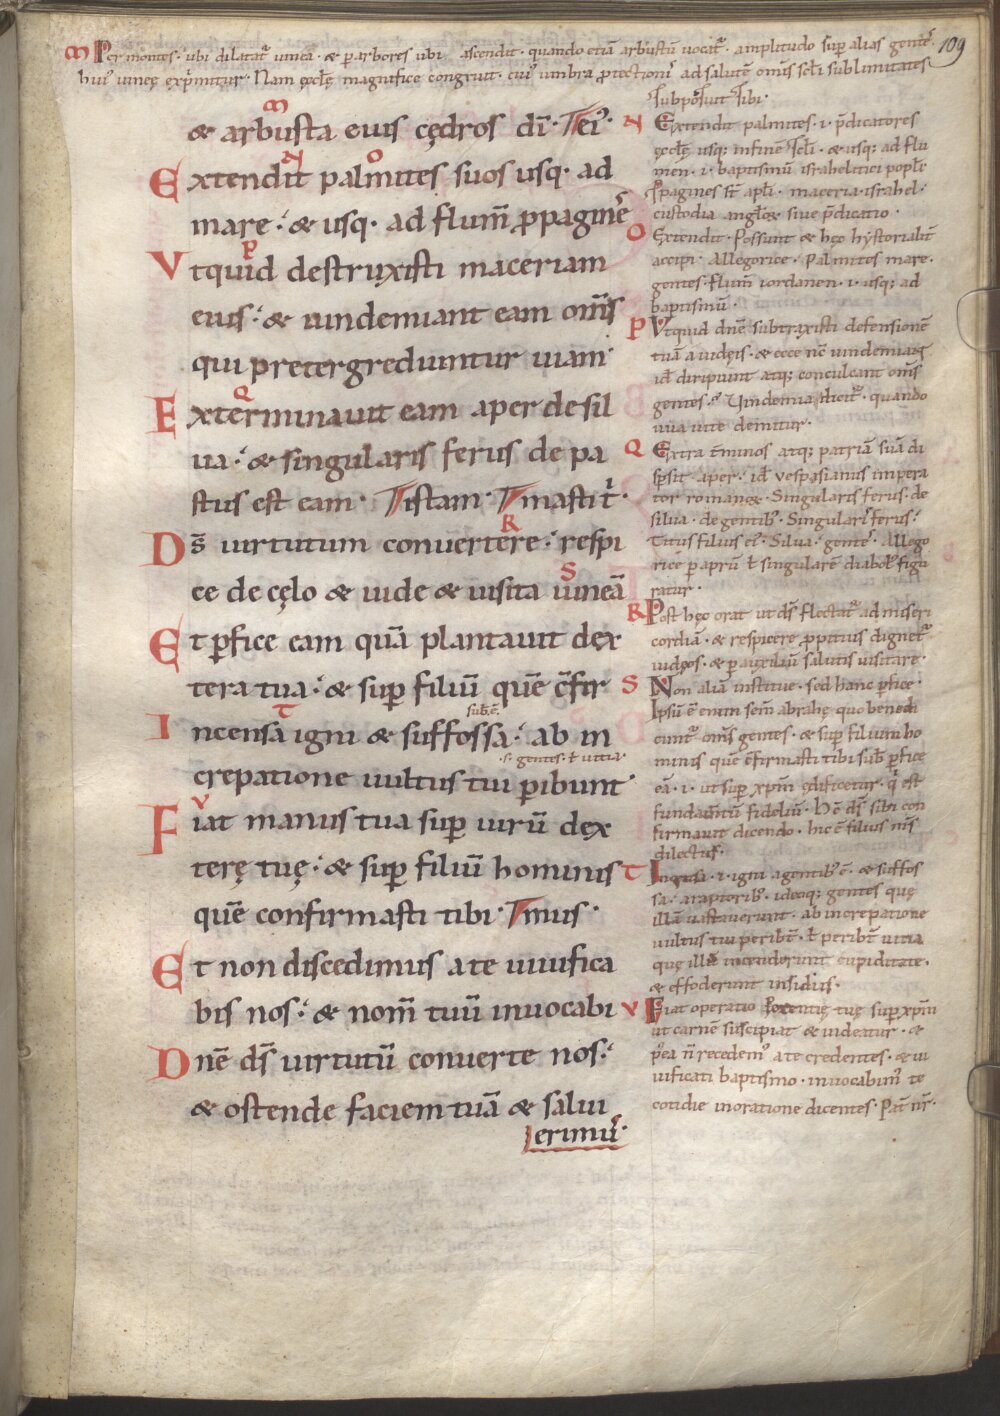 109
M Per montes · ubi dilatat᷑ uinea · & p arbores ubi ascendit · quando etiā arbustū uocat᷑ · amplitudo sup alias gentes
huiꝰ uineę exprimitur · Nam ęcclę magnifice congruit · cuiꝰ umbra protectionis ad salutē omīs scli sublimitates
subposuit sibi ·
M
& arbusta euis cędros dī · Tei ·
N O
Extendit palmites suos usq · ad
mare : & usq · ad flum̄ ppaginē
P
Vtquid destruxisti maceriam
euis : & uindemiant eam om̄s
qui pretergrediuntur uiam
Q
Exterminauit eam aper de sil
ua : & singularis ferus de pa
stus est eam · Tistam · Tmastit̄ ·
R
Ds̄ uirtutum conuertere : respi
S
ce de cęlo & uide & uisita uineā
Et pfice eam quā plantauit dex
tera tua : & sup filiū quē c̄fir
T sub.ē.
Incensa igni & suffossa : ab in
·s· gentes · ł uitia ·
crepatione uultus tui pibunt
V
Fiat manus tua sup uirū dex
terę tuę : & sup filiū hominis
quē confirmasti tibi · Tmus ·
Et non discedimus a te uiuifica
bis nos : & nom̄ tuū inuocabi
Dnē ds̄ uirtutū conuerte nos :
& ostende faciem tuā & salui
erimus ·
N Extendit palmites · i · p̄dicatores
ęcclę usq; in finē scli · & usq; ad flu
men · i · baptismū israhelitici popli
Propagines st̄ apli · maceria · israhel ·
custodia anglo⁊ siue p̄dicatio ·
O Extendit · Possunt & hęc hystorialit̄
accipi · Allegorice · Palmites mare ·
gentes · flum̄ iordanen · i · usq; ad
baptismū ·
P Vtquid dnē subtraxisti defensionē
tuā a iudęis · & ecce nē uindemiant
id diripiunt atq; conculcant om̄s
gentes · Uindemia dicit᷑ · quando
uua uite demitur ·
Q Extra t̄minos atq; patriā suā di
spsit aper · id uespasianus impera
tor romanę · Singularis ferus · de
silua · de gentibꝰ · Singularis ferus :
Titus filius eiꝰ · Silua · gentes · Allego
rice p aprū ł singularē diabolꝰ figu
ratur ·
R Post hęc orat ut ds̄ flectat᷑ ad miseri
cordiā · & respicere ppitius dignet᷑
iudęos · & p auxiliū salutis uisitare ·
S Non aliā institue · sed hanc pfice ·
Ipsū ē enim sem̄ abrahę quo benedi
cunt᷑ om̄s gentes · & sup filium ho
minis quē c̄firmasti tibi sub pfice
eā · i · ut sup xpm̄ ędificetur · q est
fundam̄tū fideliū · Hc̄ ds̄ sibi con
firmauit dicendo · hic ē filius m̄s
dilectus ·
T Incensa · i · igni agentibꝰ ē · & suffos
sa · a raptoribꝰ · ideoq; gentes quę
illā uastauerunt · ab increpatione
uultus tui peribt̄ · ł peribt̄ uitia
quę illā incenderunt cupiditate ·
& effoderunt insidiis ·
V Fiat operatio potentię tuę sup xpm̄
ut carnē suscipiat & uideatur · &
p̄ea n̄ recedemꝰ a te credentes · & ui
uificati baptismo · inuocabimꝰ te
cotidie in oratione dicentes · Pat̄ nr̄ ·